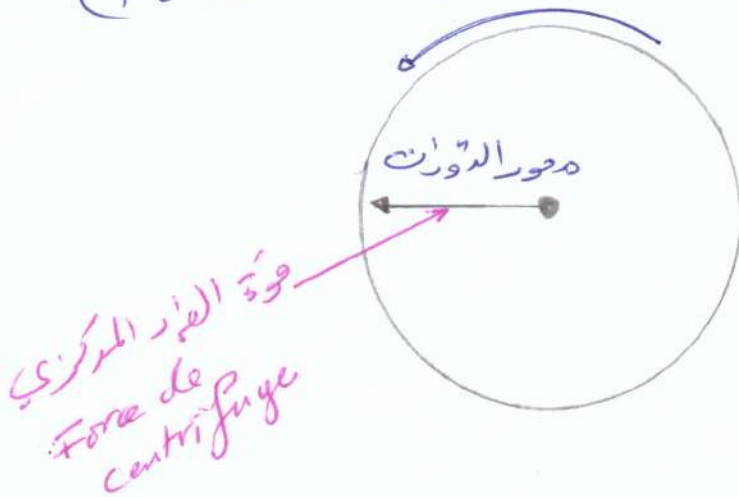 محور الدوران
قوة الفرد المركزي
Force de
centrifuge